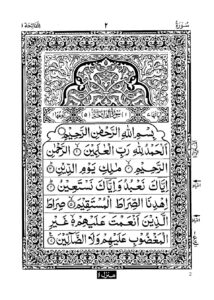 سورة ٢ الفاتحة ١
بِسْمِ اللهِ الرَّحْمٰنِ الرَّحِيْمِ
اَلْحَمْدُ لِلّٰهِ رَبِّ الْعٰلَمِيْنَ ۙ الرَّحْمٰنِ
الرَّحِيْمِ ۙ مٰلِكِ يَوْمِ الدِّيْنِ ۗ
اِيَّاكَ نَعْبُدُ وَاِيَّاكَ نَسْتَعِيْنُ ۗ
اِهْدِنَا الصِّرَاطَ الْمُسْتَقِيْمَ ۙ صِرَاطَ
الَّذِيْنَ اَنْعَمْتَ عَلَيْهِمْ ۙ غَيْرِ
الْمَغْضُوْبِ عَلَيْهِمْ وَلَا الضَّآلِّيْنَ
منزل ١
2